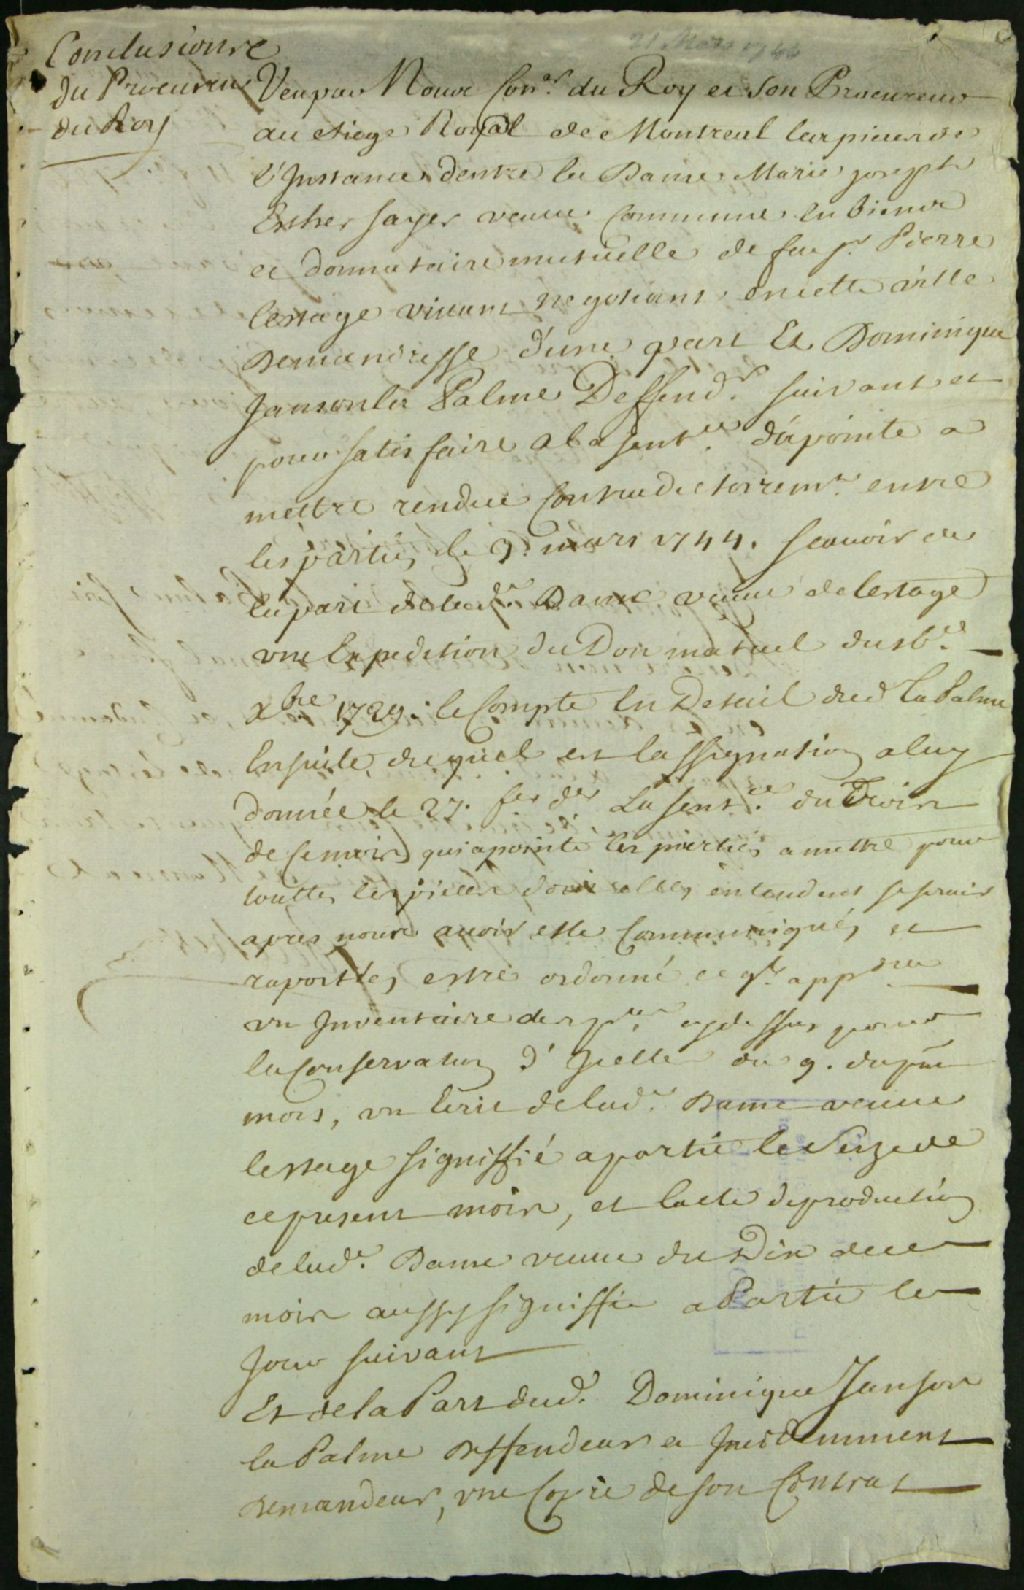 21 Mars 1744
Conclusions
du Procureur
du Roy
Veu par Nous Con.er du Roy et son Procureur
au siege Royal de Montreal les pieces de
l'Instance d'entre la Dame Marie Joseph
Esther Sayer veuve Commune en biens
et donnataire mutuelle de feu s.r Pierre
Lestage vivant negotiant en cette ville
Demandresse d'une part Et Dominique
Janson la Palme Deffend.r suivant et
pour satisfaire a la sent.ce d'apointé a
mettre rendue Contradictoirem.t entre
les parties le 3.e mars 1744. scavoir de
la part de lad.e Dame veuve de lestage
une Expedition du Don mutuel du 16.e
Xbre 1729. le Compte en Detail dud. La Palme
Ensuite duquel est l'assignation a luy
donnée le 27. fev. der La sent.ce du Trois
de ce mois qui apointe les parties a mettre pour
toutes les pieces dont elles entendent se servir
apres nous avoir esté Communiqués et
raportés, estre ordonné ce q.l app.dra
un Inventaire des p.ces cy dessus pour
la Conservation d'Icelle du 9. du p.nt
mois, un Ecrit de lad.e Dame veuve
lestage signiffié a partie le Seize de
ce present mois, et l'acte de production
de lad.e Dame veuve du Dix de ce
mois aussy signiffié a Partie le
Jour suivant
Et de la Part dud. Dominique Janson
la Palme Deffendeur et Incidemment
demandeur, une Copie de son Contrat